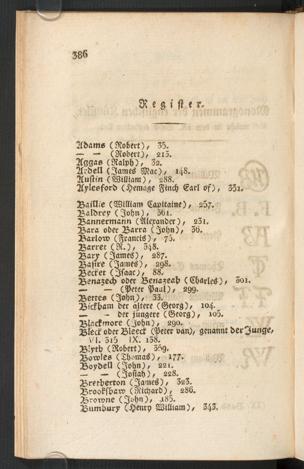 386
Register.
Adams (Robert), 35.
— — (Robert), 215.
Aggas (Ralph), 32.
Ardell (James Mac), 148.
Austin (William), 288.
Aylesford (Hemage Finch Earl of), 331.
Baillie (William Capitaine), 257.
Baldrey (John), 361.
Bannermann (Alexander), 231.
Bara oder Barra (John), 36.
Barlow (Francis), 75.
Barret (R.), 348.
Bary (James), 287.
Basire (James), 298.
Becket (Isaac), 88.
Benazech oder Benazeah (Charles), 301.
— — (Peter Paul), 299.
Bettes (John), 33.
Bickham der ältere (Georg), 104.
— — der jüngere (Georg), 105.
Blackmore (John), 290.
Bleck oder Bleeck (Peter van), genannt der Junge,
VI. 315 IX. 138.
Blyth (Robert), 359.
Bowles (Thomas), 177.
Boydell (John), 221.
— — (Josiah), 228.
Bretherton (James), 323.
Brookshaw (Richard), 286.
Browne (John), 185.
Bumbury (Henry William), 343.